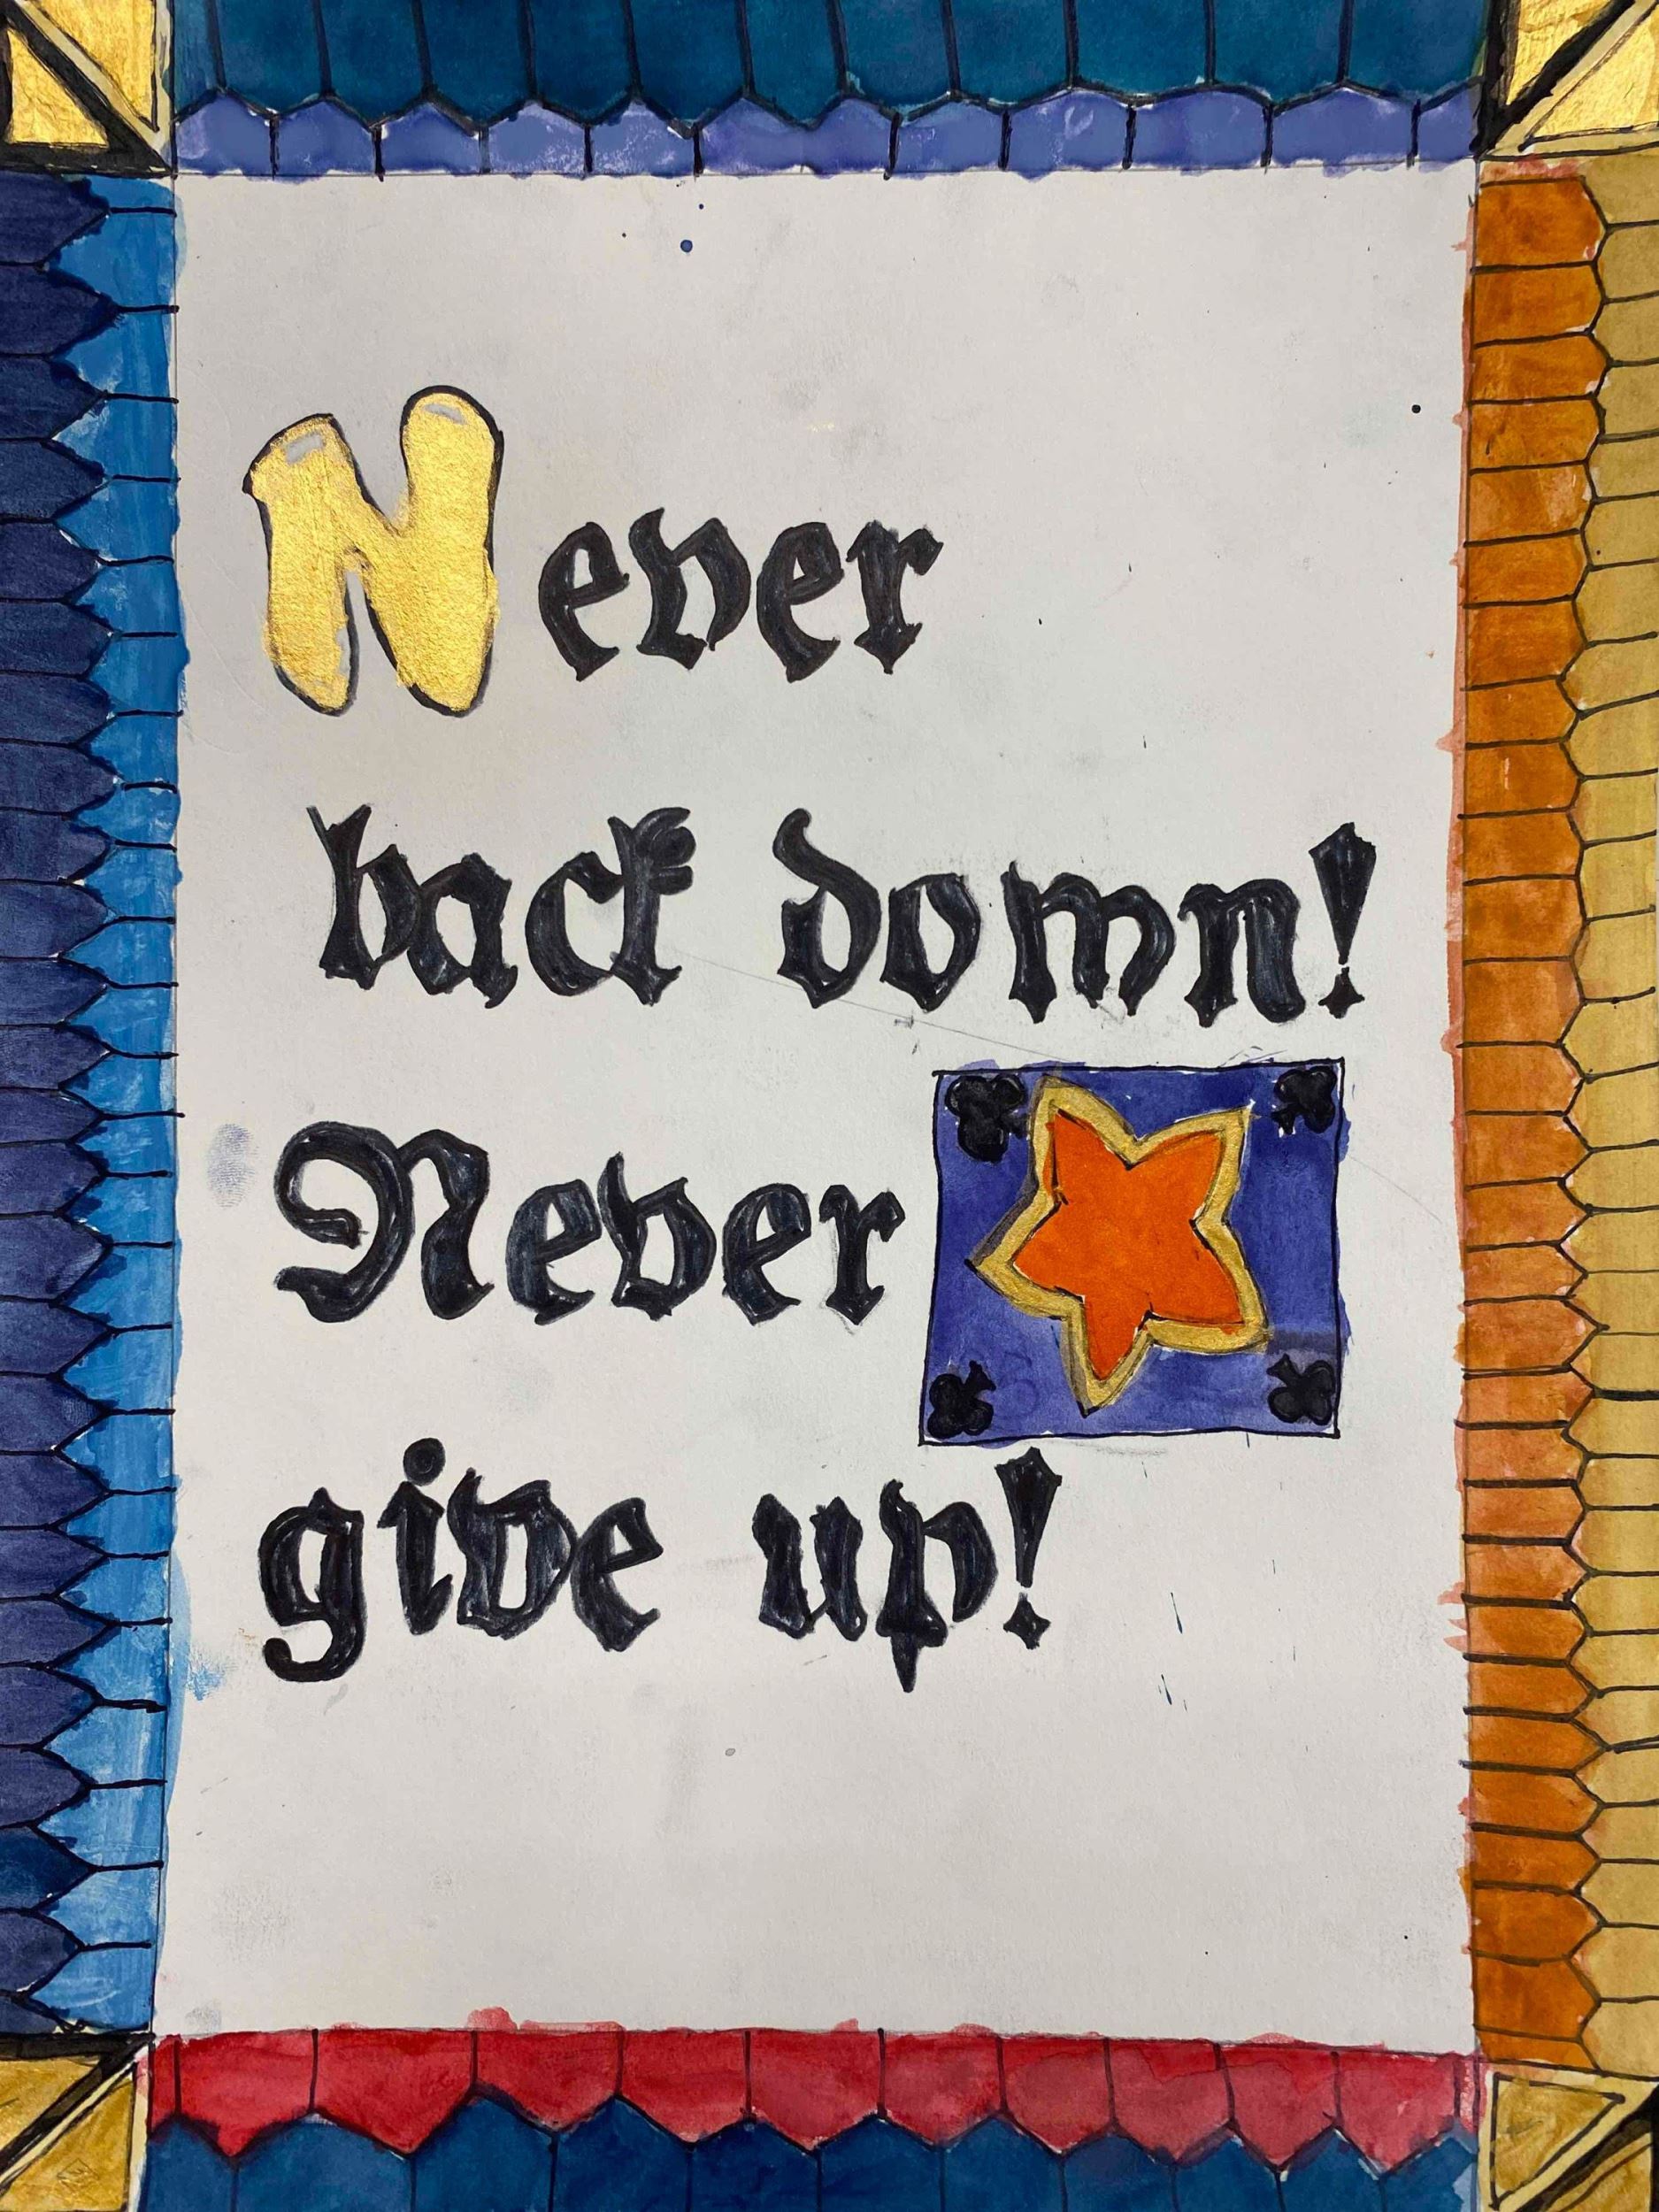 Never
back domn!
Never
give up!